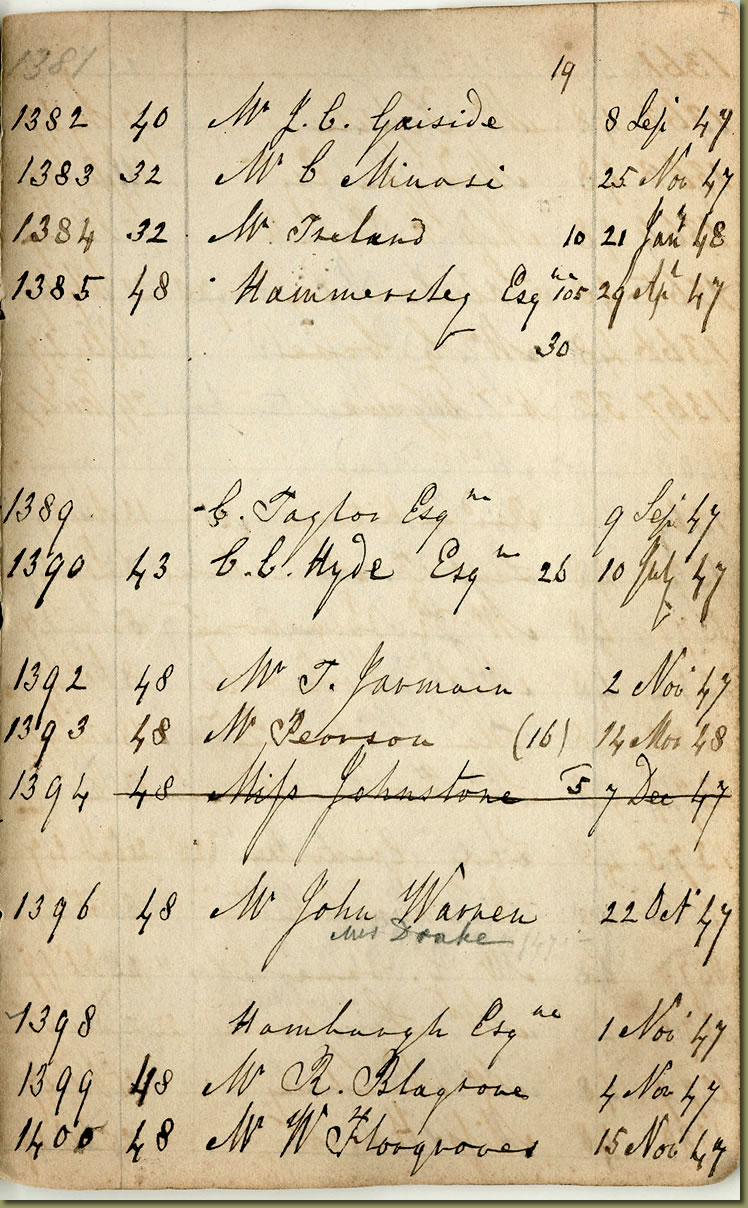 1381
19
1382 40 Mr J. C. Gaiside 8 Sep 47
1383 32 Mr C Minasi 25 Nov 47
1384 32 Mr Ireland 10 21 Jany 48
1385 48 Hammersley Esqre 105 29 Apl 47
30
1389 C. Taylor Esqre 9 Sep 47
1390 43 C. C. Hyde Esqre 26 10 July 47
1392 48 Mr T. Jarmain 2 Nov 47
1393 48 Mr Pearson (16) 14 Mar 48
1394 48 Miss Johnstone 5 7 Dec 47
1396 48 Mr John Warren 22 Oct 47
Mrs Drake
1398 Hamburgh Esqre 1 Nov 47
1399 48 Mr R. Blagrove 4 Nov 47
1400 48 Mr W Floorgroves 15 Nov 47